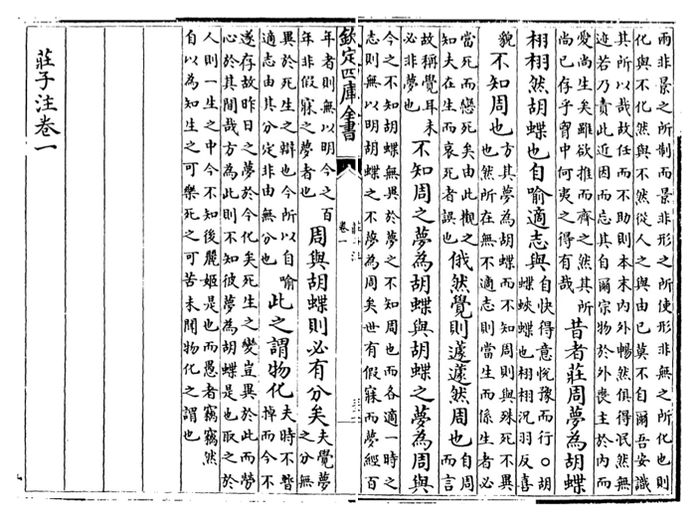 兩非景之所制而景非形之所使形非無之所化也則
化與不化然與不然從人之與由已莫不自爾吾安識
其所以哉故任而不助則本末内外暢然俱得泯然無
迹若乃責此近因而忘其自爾宗物於外喪主於内而
愛尚生矣雖欲推而齊之然其所
尚已存乎胷中何夷之得有哉
昔者莊周夢為胡蝶
栩栩然胡蝶也自喻適志與
自快得意悦豫而行○胡
蝶蛺蝶也栩栩况羽反喜
貌
不知周也
方其夢為胡蝶而不知周則與殊死不異
也然所在無不適志則當生而係生者必
當死而戀死矣由此觀之
知夫在生而哀死者誤也
俄然覺則蘧蘧然周也
自周
而言
故稱覺耳未
必非夢也
不知周之夢為胡蝶與胡蝶之夢為周與
今之不知胡蝶無異於夢之不知周也而各適一時之
志則無以明胡蝶之不夢為周矣世有假寐而夢經百
欽定四庫全書
莊子注
卷一
年者則無以明今之百
年非假寐之夢者也
周與胡蝶則必有分矣
夫覺夢
之分無
異於死生之辯也今所以自喻
適志由其分定非由無分也
此之謂物化
夫時不暫
停而今不
遂存故昨日之夢於今化矣死生之變豈異於此而勞
心於其間哉方為此則不知彼夢為胡蝶是也取之於
人則一生之中今不知後麗姬是也而愚者竊竊然
自以為知生之可樂死之可苦未聞物化之謂也
莊子注卷一